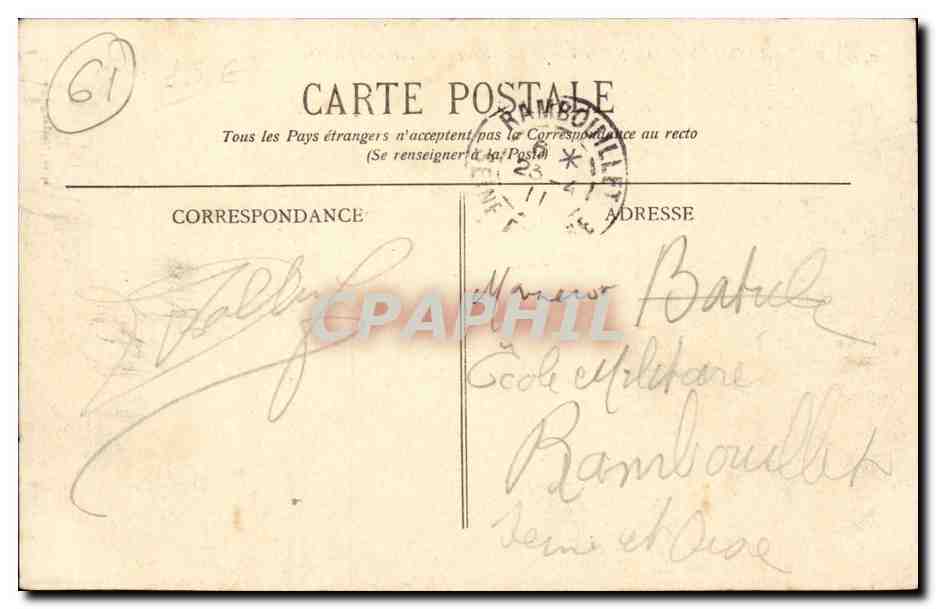 61
CARTE POSTALE
Tous les Pays étrangers n'acceptent pas la Correspondance au recto
(Se renseigner à la Poste)
RAMBOUILLET
6 *
23 -4
11
SEINE
CORRESPONDANCE
ADRESSE
CPAPHIL
École Militaire
Rambouillet
Seine et Oise